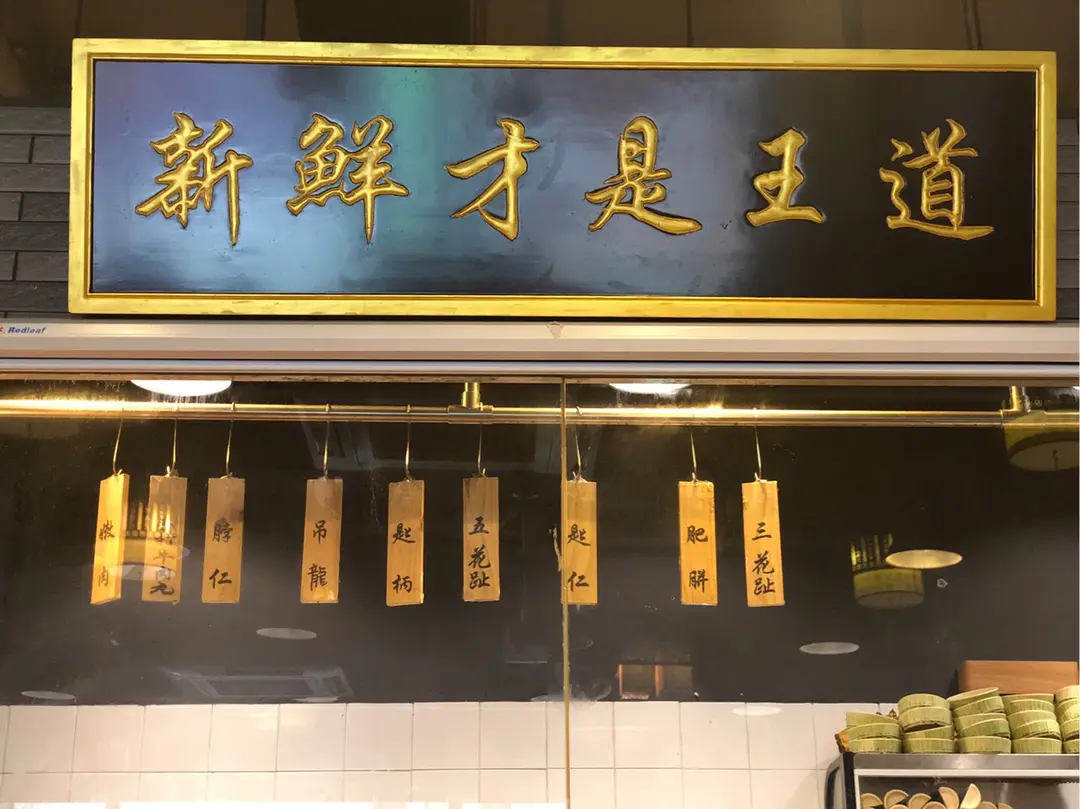 新鮮才是王道
Redleaf
嫩肉
牛肉丸
脖仁
吊龍
匙柄
五花趾
匙仁
肥胼
三花趾